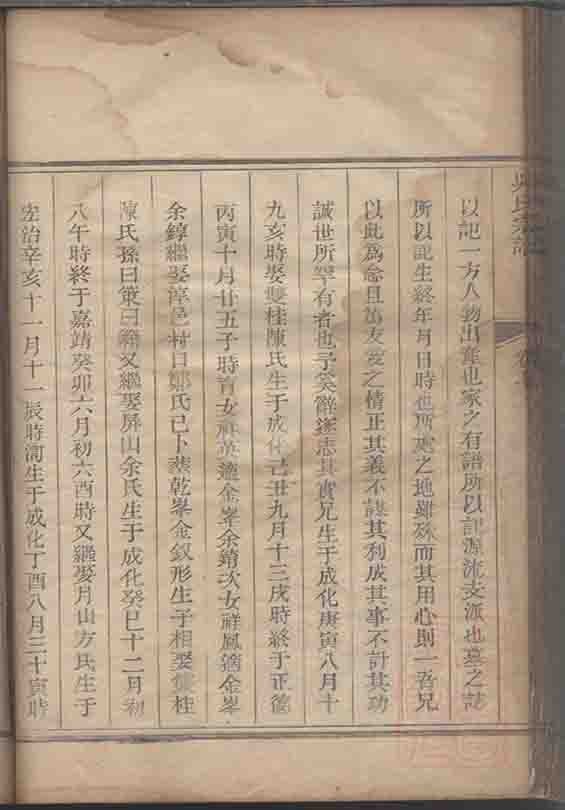 以記一方人物出產也家之有譜所以記源流支派也墓之誌
所以記生終年月日時也所處之地雖殊而其用心則一吾兄
以此為念且篤友愛之情正其義不謀其利成其事不計其功
誠世所罕有者也予奚辭遂志其實兄生于成化庚寅八月十
九亥時娶雙桂陳氏生于成化己丑九月十三戌時終于正德
丙寅十月廿五子時育女祥英適金峯余 次女祥鳳適金峯
余錞繼娶淳邑村口鄭氏已卜葬乾峯金釵形生子相娶雙桂
陳氏孫曰策曰籍又繼娶屏山余氏生于成化癸巳十二月初
八午時終于嘉靖癸卯六月初六酉時又繼娶月山方氏生于
宏治辛亥十一月十一辰時 生于成化丁酉八月三十寅時
吳氏宗譜